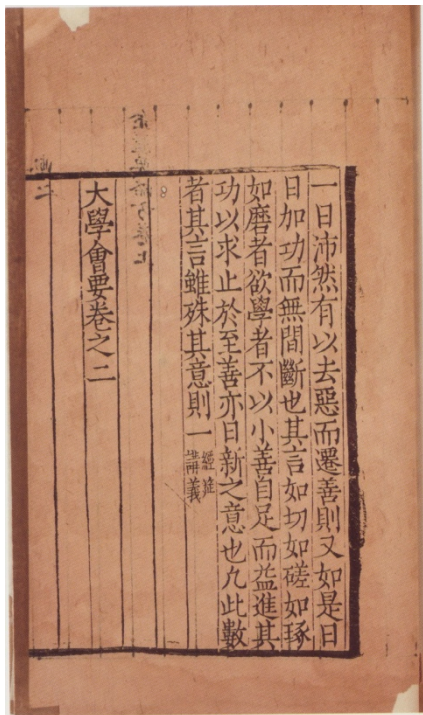 一日沛然有以去惡而遷善則又如是日
日加功而無間斷也其言如切如磋如琢
如磨者欲學者不以小善自足而益進其
功以求止於至善亦日新之意也凡此數
者其言雖殊其意則一經筵講義
大學會要卷之二